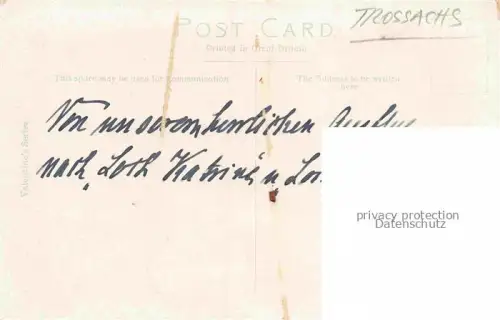 TROSSACHS
POST CARD
Printed in Great Britain
This space may be used for Communication
The Address to be written
here
Valentine's Series
Von unserem herrlichen Ausflug
nach Loch Katrine u. Lo
privacy protection
AK-Ansichtskarten.de